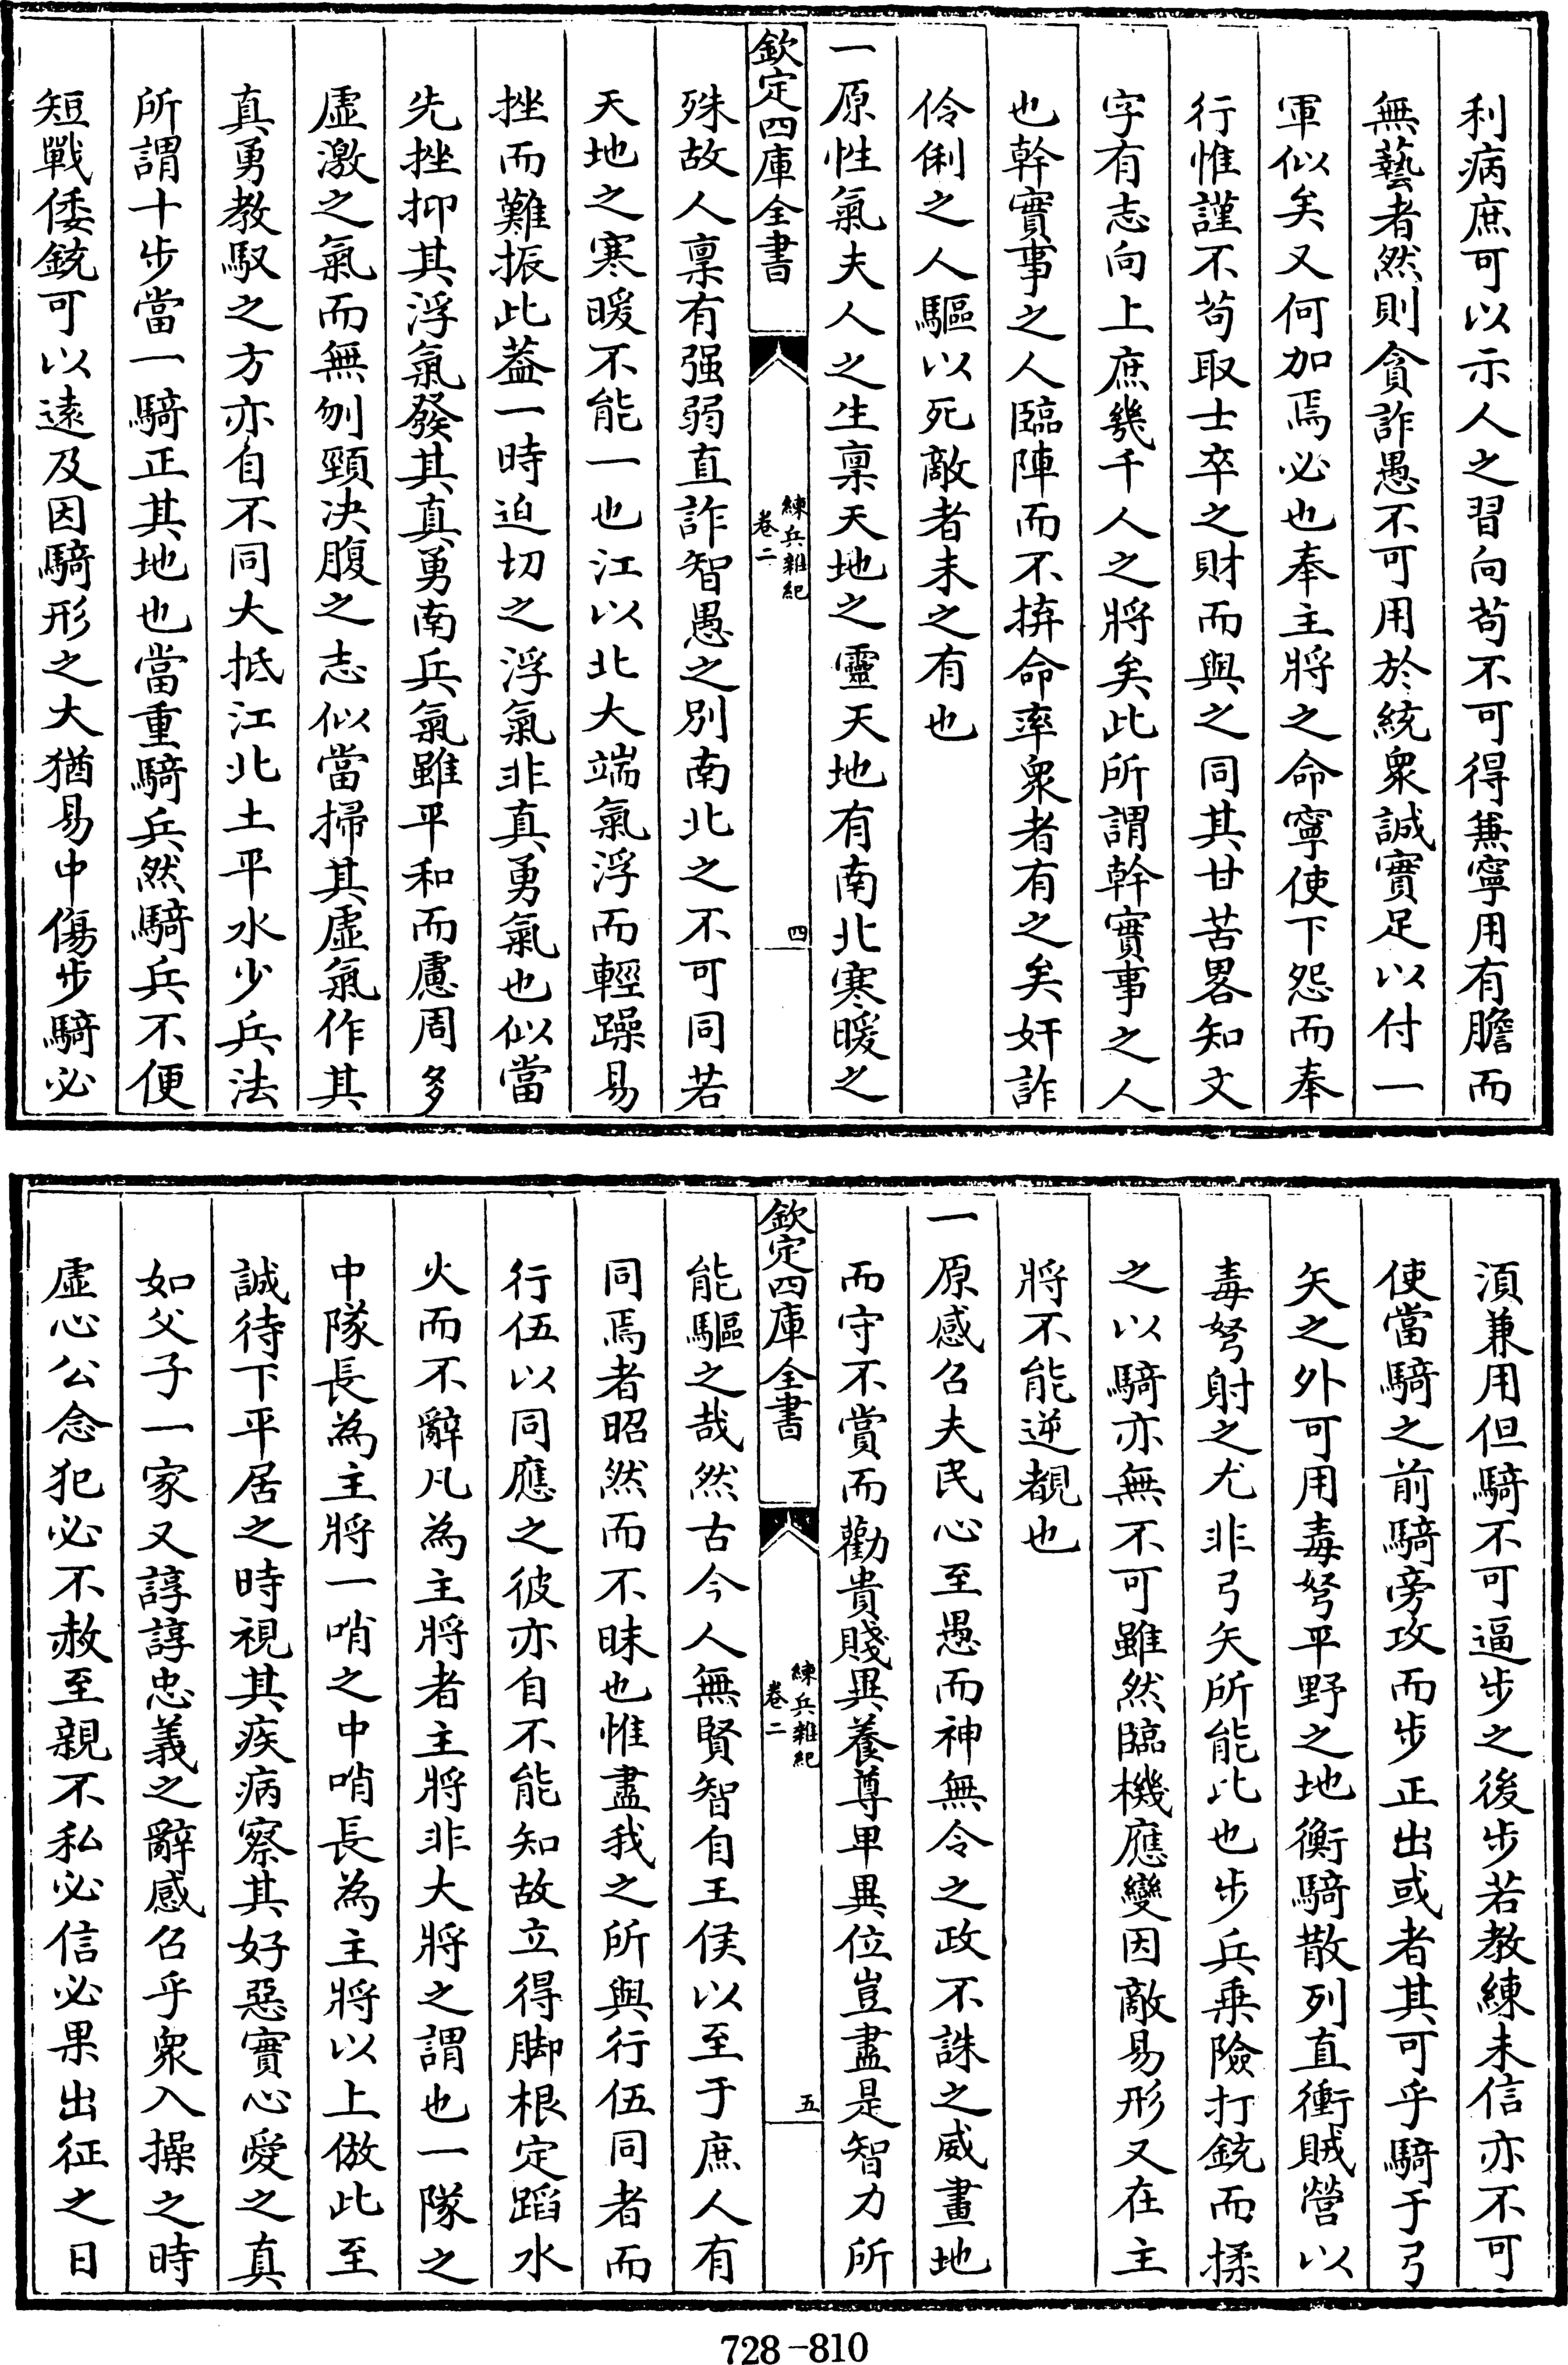 利病庶可以示人之習向苟不可得兼寧用有膽而
無藝者然則貪詐愚不可用於統衆誠實足以付一
軍似矣又何加焉必也奉主將之命寧使下怨而奉
行惟謹不苟取士卒之財而與之同其甘苦畧知文
字有志向上庶幾千人之將矣此所謂幹實事之人
也幹實事之人臨陣而不拚命率衆者有之矣奸詐
伶俐之人驅以死敵者未之有也
一原性氣夫人之生禀天地之靈天地有南北寒暖之
欽定四庫全書
練兵雜紀
卷二
四
殊故人禀有强弱直詐智愚之別南北之不可同若
天地之寒暖不能一也江以北大端氣浮而輕躁易
挫而難振此葢一時迫切之浮氣非真勇氣也似當
先挫抑其浮氣發其真勇南兵氣雖平和而慮周多
虛激之氣而無刎頸决腹之志似當掃其虛氣作其
真勇教馭之方亦自不同大抵江北土平水少兵法
所謂十步當一騎正其地也當重騎兵然騎兵不便
短戰倭銃可以遠及因騎形之大猶易中傷步騎必
湏兼用但騎不可逼步之後步若教練未信亦不可
使當騎之前騎旁攻而步正出或者其可乎騎于弓
矢之外可用毒弩平野之地衡騎散列直衝賊營以
毒弩射之尤非弓矢所能比也步兵乗險打銃而揉
之以騎亦無不可雖然臨機應變因敵易形又在主
將不能逆覩也
一原感召夫民心至愚而神無令之政不誅之威畫地
而守不賞而勸貴賤異養尊卑異位豈盡是智力所
欽定四庫全書
練兵雜紀
卷二
五
能驅之哉然古今人無賢智自王侯以至于庶人有
同焉者昭然而不昧也惟盡我之所與行伍同者而
行伍以同應之彼亦自不能知故立得脚根定蹈水
火而不辭凡為主將者主將非大將之謂也一隊之
中隊長為主將一哨之中哨長為主將以上倣此至
誠待下平居之時視其疾病察其好惡實心愛之真
如父子一家又諄諄忠義之辭感召乎衆入操之時
虛心公念犯必不赦至親不私必信必果出征之日
728-810